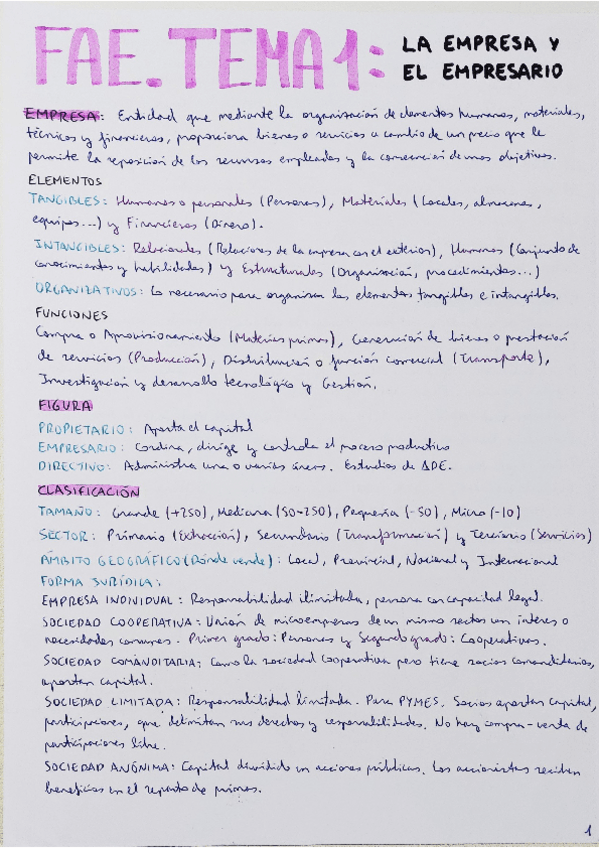 FAE. TEMA 1: LA EMPRESA Y
EL EMPRESARIO
EMPRESA: Entidad que mediante la organización de elementos humanos, materiales,
técnicos y financieros, proporciona bienes o servicios a cambio de un precio que le
permite la reposición de los recursos empleados y la consecución de unos objetivos.
ELEMENTOS
TANGIBLES: Humanos o personales (Personas), Materiales (Locales, almacenes,
equipos...) y Financieros (Dinero).
INTANGIBLES: Relacionales (Relaciones de la empresa con el exterior), Humanos (Conjunto de
conocimientos y habilidades) y Estructurales (Organización, procedimientos...)
ORGANIZATIVOS: Lo necesario para organizar los elementos tangibles e intangibles.
FUNCIONES
Compra o Aprovisionamiento (Materias primas), Generación de bienes o prestación
de servicios (Producción), Distribución o función comercial (Transporte),
Investigación y desarrollo tecnológico y Gestión.
FIGURA
PROPIETARIO: Aporta el capital
EMPRESARIO: Cordina, dirige y controla el proceso productivo
DIRECTIVO: Administra una o varias áreas. Estudios de ADE.
CLASIFICACIÓN
TAMAÑO: Grande (+250), Mediana (50-250), Pequeña (-50), Micro (-10)
SECTOR: Primario (Extracción), Secundario (Transformación) y Terciario (Servicios)
ÁMBITO GEOGRÁFICO (Dónde vende): Local, Provincial, Nacional y Internacional
FORMA JURÍDICA:
EMPRESA INDIVIDUAL: Responsabilidad ilimitada, persona con capacidad legal.
SOCIEDAD COOPERATIVA: Unión de microempresas de un mismo sector con interes o
necesidades comunes. Primer grado: Personas y Segundo grado: Cooperativas.
SOCIEDAD COMANDITARIA: Como la sociedad cooperativa pero tiene socios comanditarios,
aportan capital.
SOCIEDAD LIMITADA: Responsabilidad limitada. Para PYMES. Socios aportan capital,
participaciones, que delimitan sus derechos y responsabilidades. No hay compra-venta de
participaciones libre.
SOCIEDAD ANÓNIMA: Capital dividido en acciones públicas. Los accionistas reciben
beneficios en el reparto de primas.
1